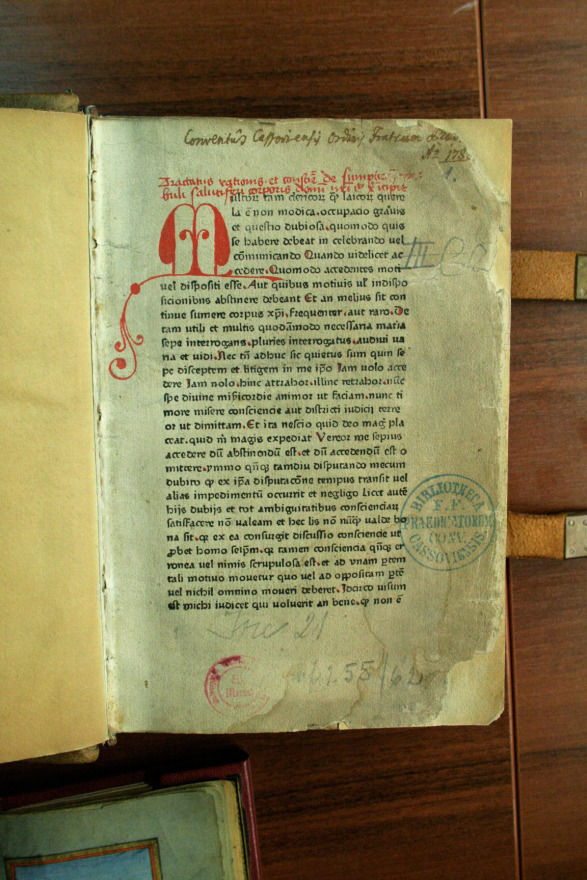 Conventus Cassoviensis Ordinis Fratrum
No 178
1.
Tractatus rationis et consciē de sumptiōe
buli salutiferi corporis domi nri
Multorum tam clericoꝝ ꝙ laicoꝝ quere
la ē non modica.occupacio grauis
et questio dubiosa.quomodo quis
se habere debeat in celebrando uel
cōmunicando Quando uidelicet ac
cedere.Quomodo accedentes moti
uel dispositi esse.Aut quibus motiuis ul' indispo
sicionibus abstinere debeant Et an melius sit con
tinue sumere corpus xp̄i.frequenter.aut raro.De
tam utili et multis quodāmodo necessaria materia
sepe interrogans.pluries interrogatus.audiui ua
ria et uidi.Nec tn̄ adhuc sic quietus sum quin se
pe disceptem et litigem in me ip̄o Iam uolo acce
dere Iam nolo.hinc attrahor.illinc retrahor.nūc
spe diuine misericordie animor ut faciam.nunc ti
more misere consciencie aut districti iudicij terre
or ut dimittam.Et ita nescio quid deo mag̃ pla
ceat.quid m̄ magis expediat Vereor me sepius
accedere dū abstinendū est.et dū accedendū est o
mittere.ymmo qn̄ꝗ tamdiu disputando mecum
dubito ꝙ ex ip̄a disputacōne tempus transit uel
alias impedimentū occurrit et negligo Licet autē
hijs dubijs et tot ambiguitatibus conscienciaꝝ
satisfacere nō ualeam et hec lis nō nūꝗ ualde bo
na sit.ꝙ ex ea consurgit discussio consciencie ut
ꝓbet homo seip̄m.ꝙ tamen consciencia qn̄ꝗ er
ronea uel nimis scrupulosa est.et ad vnam ꝑtem
tali motiuo mouetur quo uel ad oppositam ꝑtē
uel nichil omnino moueri deberet.Idcirco uisum
est michi iudicet qui voluerit an bene.ꝙ non ē
BIBLIOTHECA
F.F.
PRAEDICATORUM
CONV.
CASSOVIENSIS
Inc 21